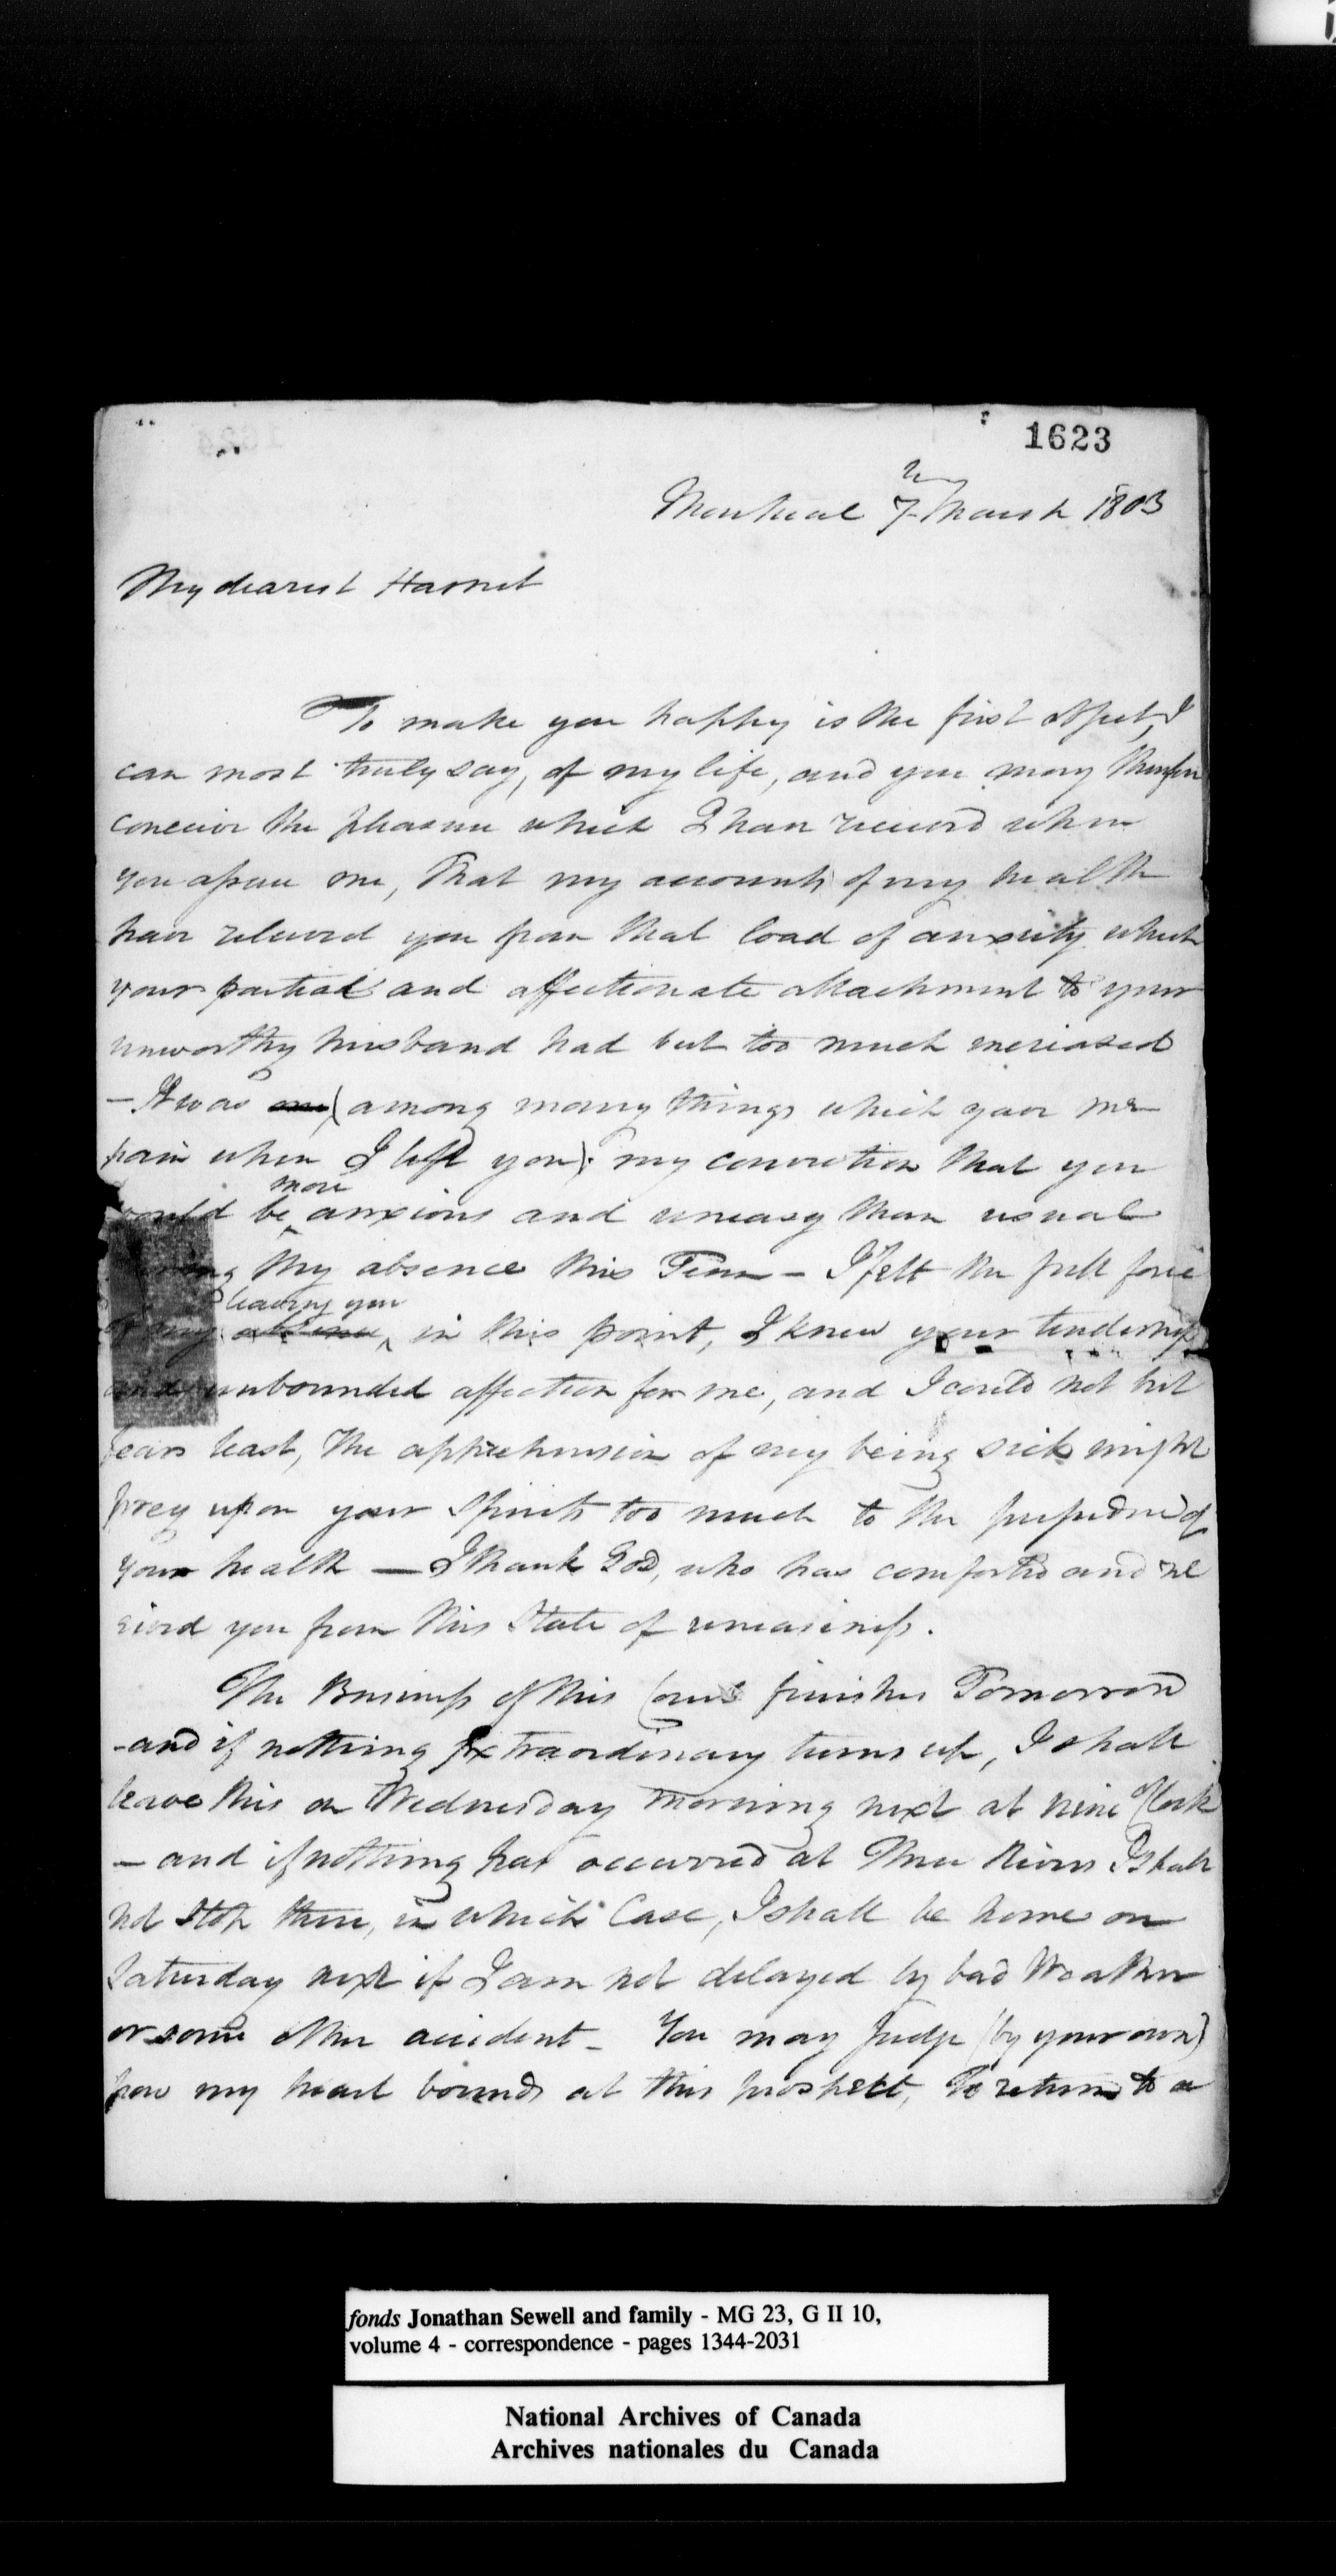 1623
Montreal 7th March 1803
My dearest Harriet
To make you happy is the first object, I
can most truly say, of my life, and you may therefore
conceive the pleasure which I have received when
you assure me, that my accounts of my health
have relieved you from that load of anxiety which
your partial and affectionate attachment to your
unworthy husband had but too much increased
- It was one (among many things which gave me
pain when I left you) my conviction that you
more
would be anxious and uneasy than usual
during my absence this Term - I felt the full force
leaving you
of my absence in this point, I knew your tenderness
and unbounded affection for me, and I could not but
fear least, the apprehension of my being sick might
prey upon your Spirits too much to the prejudice of
your health — I thank God, who has comforted and re
lieved you from this State of uneasiness.
The Business of this Court finishes Tomorrow
- and if nothing extraordinary turns up, I shall
leave this on Wednesday morning next at nine oClock
- and if nothing has occurred at Three Rivers I shall
not Stop there, in which Case, I shall be home on
Saturday next if I am not delayed by bad Weather
or some other accident - You may Judge (by your own)
how my heart bounds at this prospect, To return to a
fonds Jonathan Sewell and family - MG 23, G II 10,
volume 4 - correspondence - pages 1344-2031
National Archives of Canada
Archives nationales du Canada